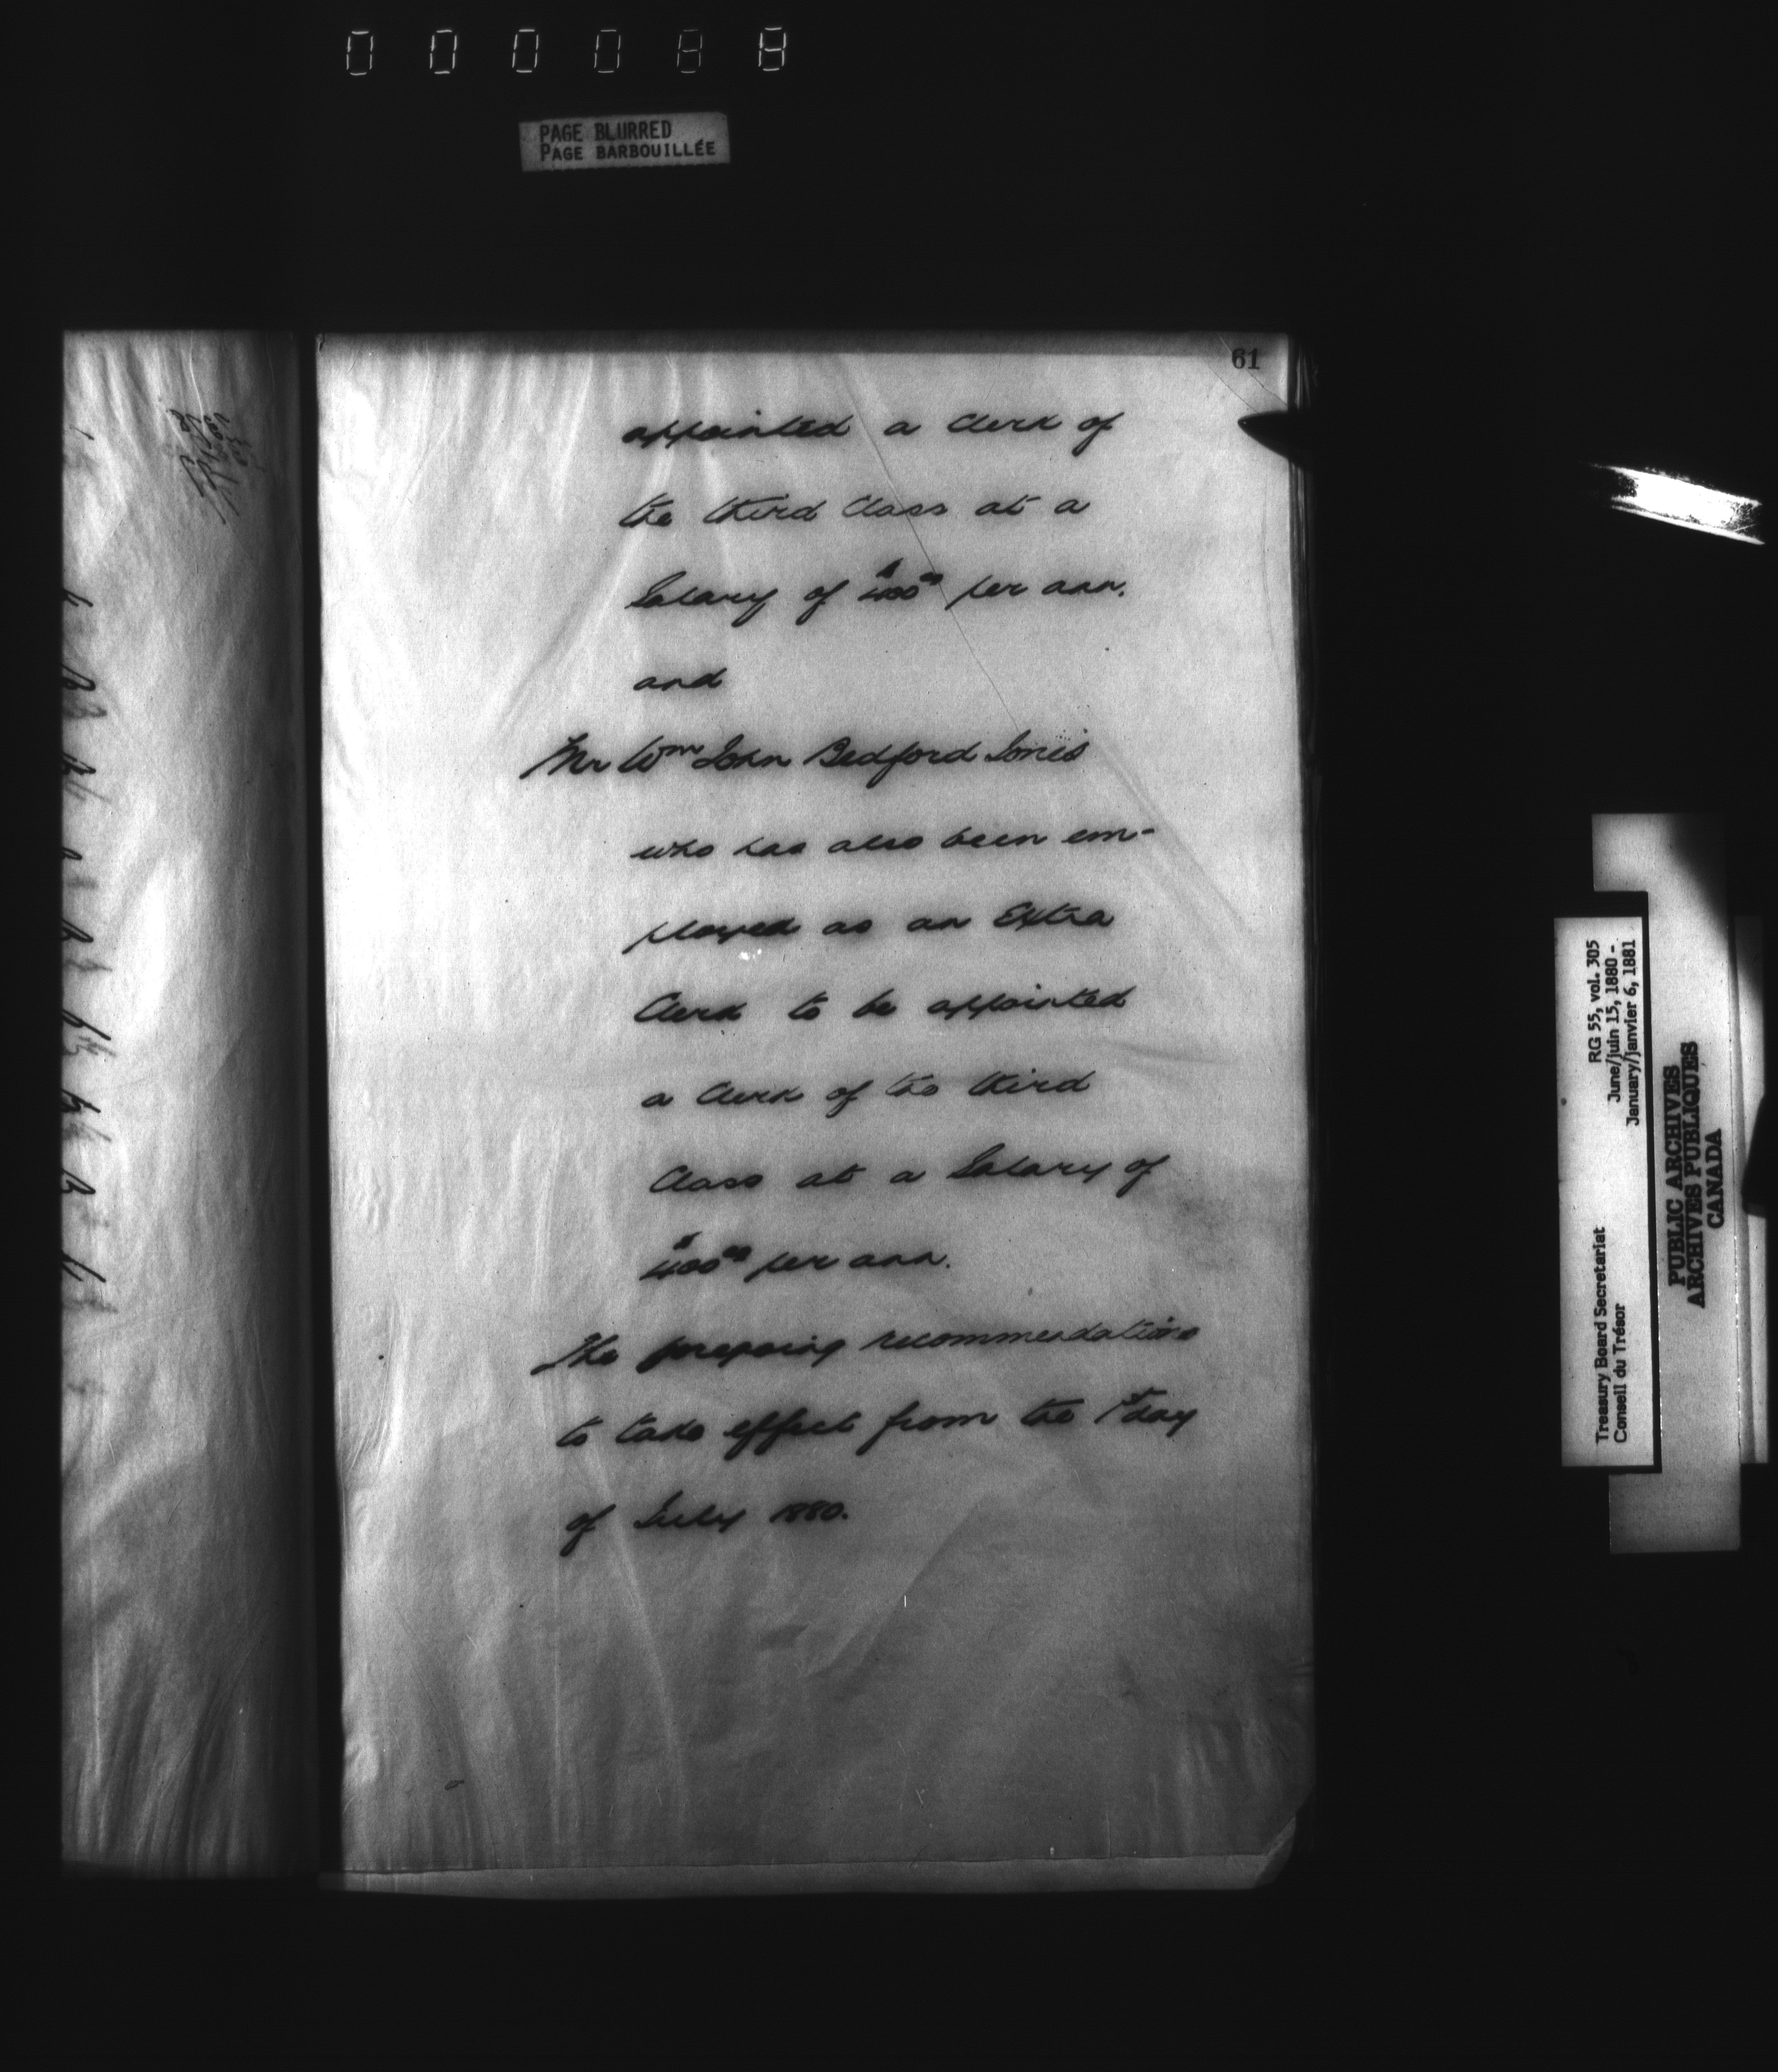 0 0 0 0 8 8
PAGE BLURRED
PAGE BARBOUILLÉE
61
appointed a Clerk of
the third Class at a
Salary of $400.00 per ann.
and
Mr Wm John Bedford Jones
who has also been em-
ployed as an Extra
Clerk to be appointed
a Clerk of the third
Class at a Salary of
$400.00 per ann.
The foregoing recommendations
to take effect from the 1st day
of July 1880.
RG 55, vol. 305
June/juin 15, 1880 -
January/janvier 6, 1881
Treasury Board Secretariat
Conseil du Trésor
PUBLIC ARCHIVES
ARCHIVES PUBLIQUES
CANADA